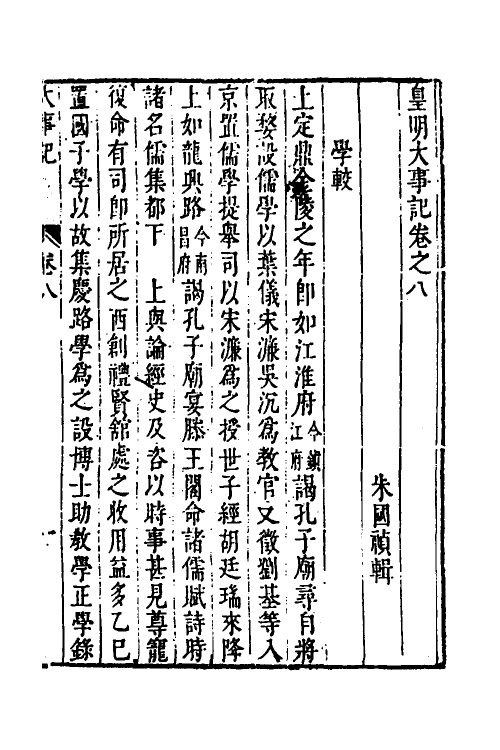 皇明大事記卷之八
朱國禎輯
學較
上定鼎金陵之年即如江淮府今鎮江府謁孔子廟尋自將
取婺設儒學以葉儀宋濂吳沉為教官又徵劉基等入
京置儒學提舉司以宋濂為之授世子經胡廷瑞來降
上如龍興路今南昌府謁孔子廟宴滕王閣命諸儒賦詩時
諸名儒集都下　上與論經史及咨以時事甚見尊寵
復命有司即所居之西創禮賢舘處之收用益多乙巳
置國子學以故集慶路學為之設博士助教學正學錄
大事記　卷八　一